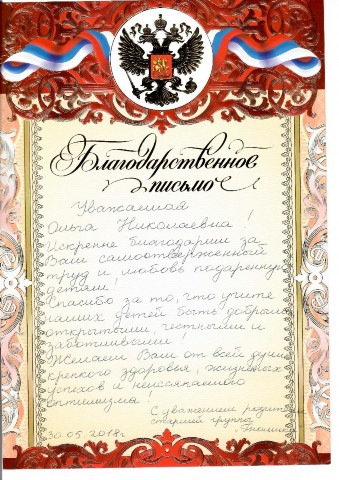 Благодарственное
письмо
Уважаемая
Ольга Николаевна!
Искренне благодарим за
Ваш самоотверженный
труд и любовь подаренную
детям!
Спасибо за то, что учите
наших детей быть добрыми,
открытыми, честными и
заботливыми!
Желаем Вам от всей души
крепкого здоровья, жизненных
успехов и неиссякаемого
оптимизма!
С уважением родители
старшей группы
30.05.2018г.